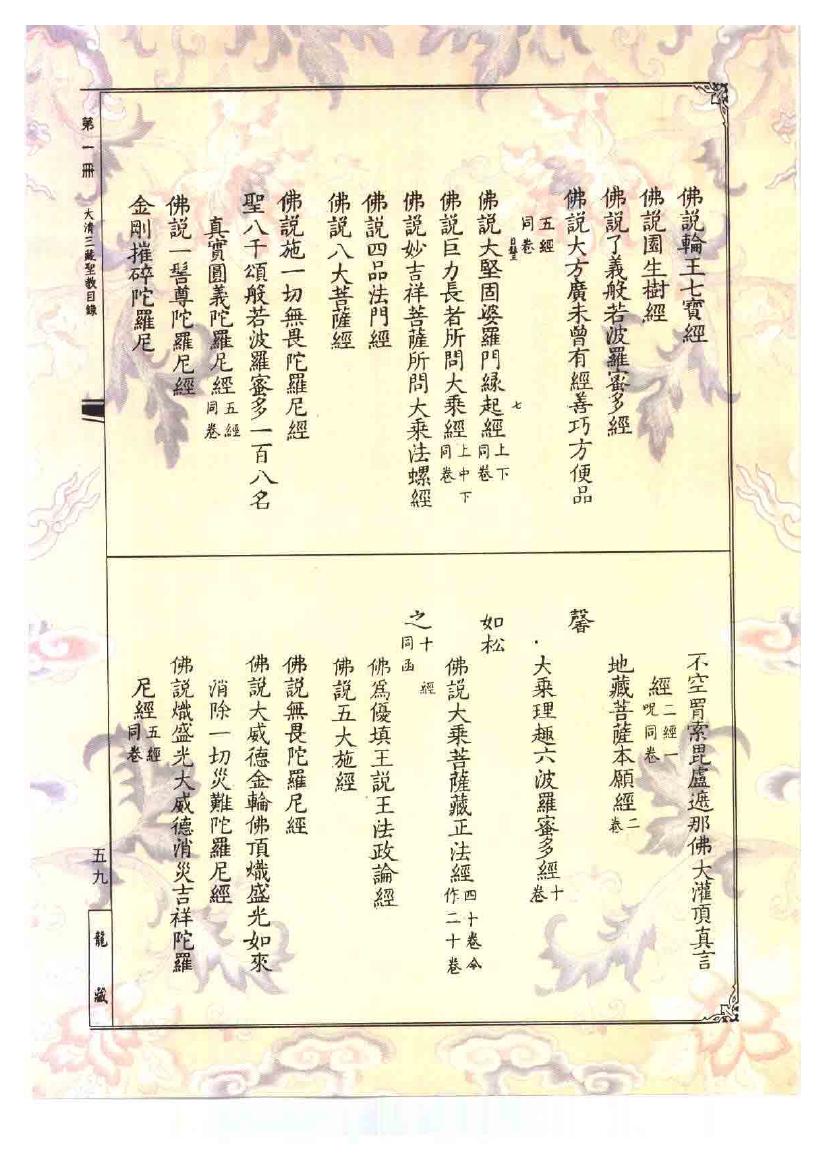 佛說輪王七寶經
佛說園生樹經
佛說了義般若波羅蜜多經
佛說大方廣未曾有經善巧方便品
五經同卷
七
佛說大堅固婆羅門緣起經上下同卷
佛說巨力長者所問大乘經上中下同卷
佛說妙吉祥菩薩所問大乘法螺經
佛說四品法門經
佛說八大菩薩經
佛說施一切無畏陀羅尼經
聖八千頌般若波羅蜜多一百八名
真實圓義陀羅尼經五經同卷
佛說一髻尊陀羅尼經
金剛摧碎陀羅尼
不空罥索毘盧遮那佛大灌頂真言
經二經一呪同卷
地藏菩薩本願經二卷
馨
大乘理趣六波羅蜜多經十卷
如松
佛說大乘菩薩藏正法經四十卷今作二十卷
之十經同函
佛為優填王說王法政論經
佛說五大施經
佛說無畏陀羅尼經
佛說大威德金輪佛頂熾盛光如來
消除一切災難陀羅尼經
佛說熾盛光大威德消災吉祥陀羅
尼經五經同卷
第一冊 大清三藏聖教目錄
五九
龍藏